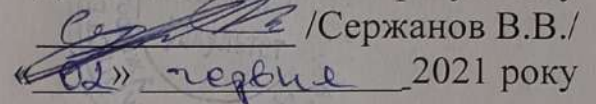 /Сержанов В.В./
«02» червня 2021 року